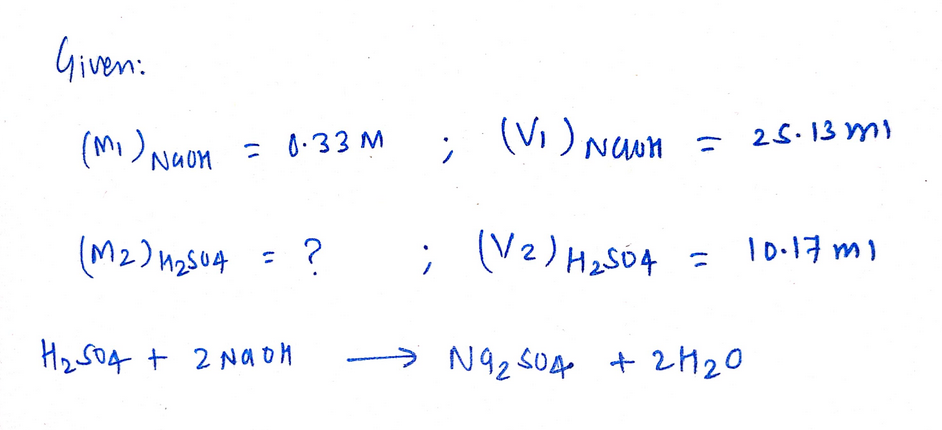 Given:
(M₁) NaOH = 0.33 M ; (V₁) NaOH = 25.13 ml
(M2) H₂SO4 = ? ; (V2) H₂SO4 = 10.17 ml
H₂SO4 + 2 NaOH ⟶ Na₂SO4 + 2H₂O